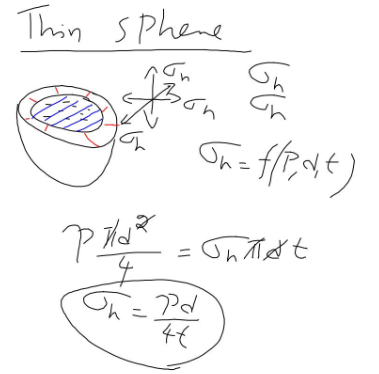 Thin sphere
σh
σh
σh
σh
σh
σh = f(P, d, t)
P πd²/4 = σh πd t
σh = Pd/4t